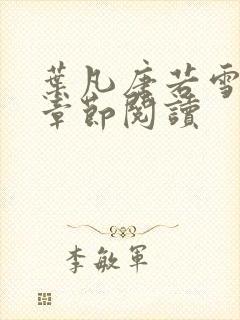 葉凡唐若雪
章節閱讀
李敏軍